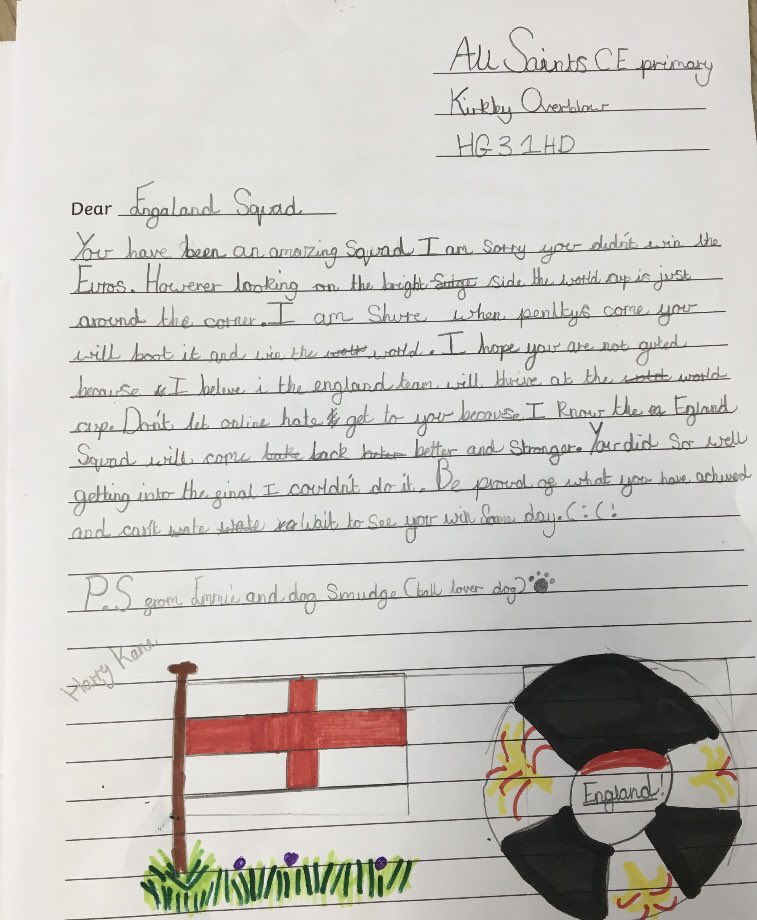 All Saints CE primary
Kirkby Overblow
HG3 1HD
Dear Engaland Squad
You have been an amazing Squad I am sorry you didn't win the
Euros. However looking on the bright side the world cup is just
around the corner. I am Shure when penltys come you
will boot it and win the world. I hope your are not guted
because I beleve i the england team will thrive at the world
cup. Don't let online hate get to you because I know the England
Squad will come back better and Stronger. You did So well
getting into the final I couldn't do it. Be proud of what you have achived
and can't wait to See you win Some day. (: (:
P.S from Emmie and dog Smudge (ball lover dog)
Harry Kane
England!